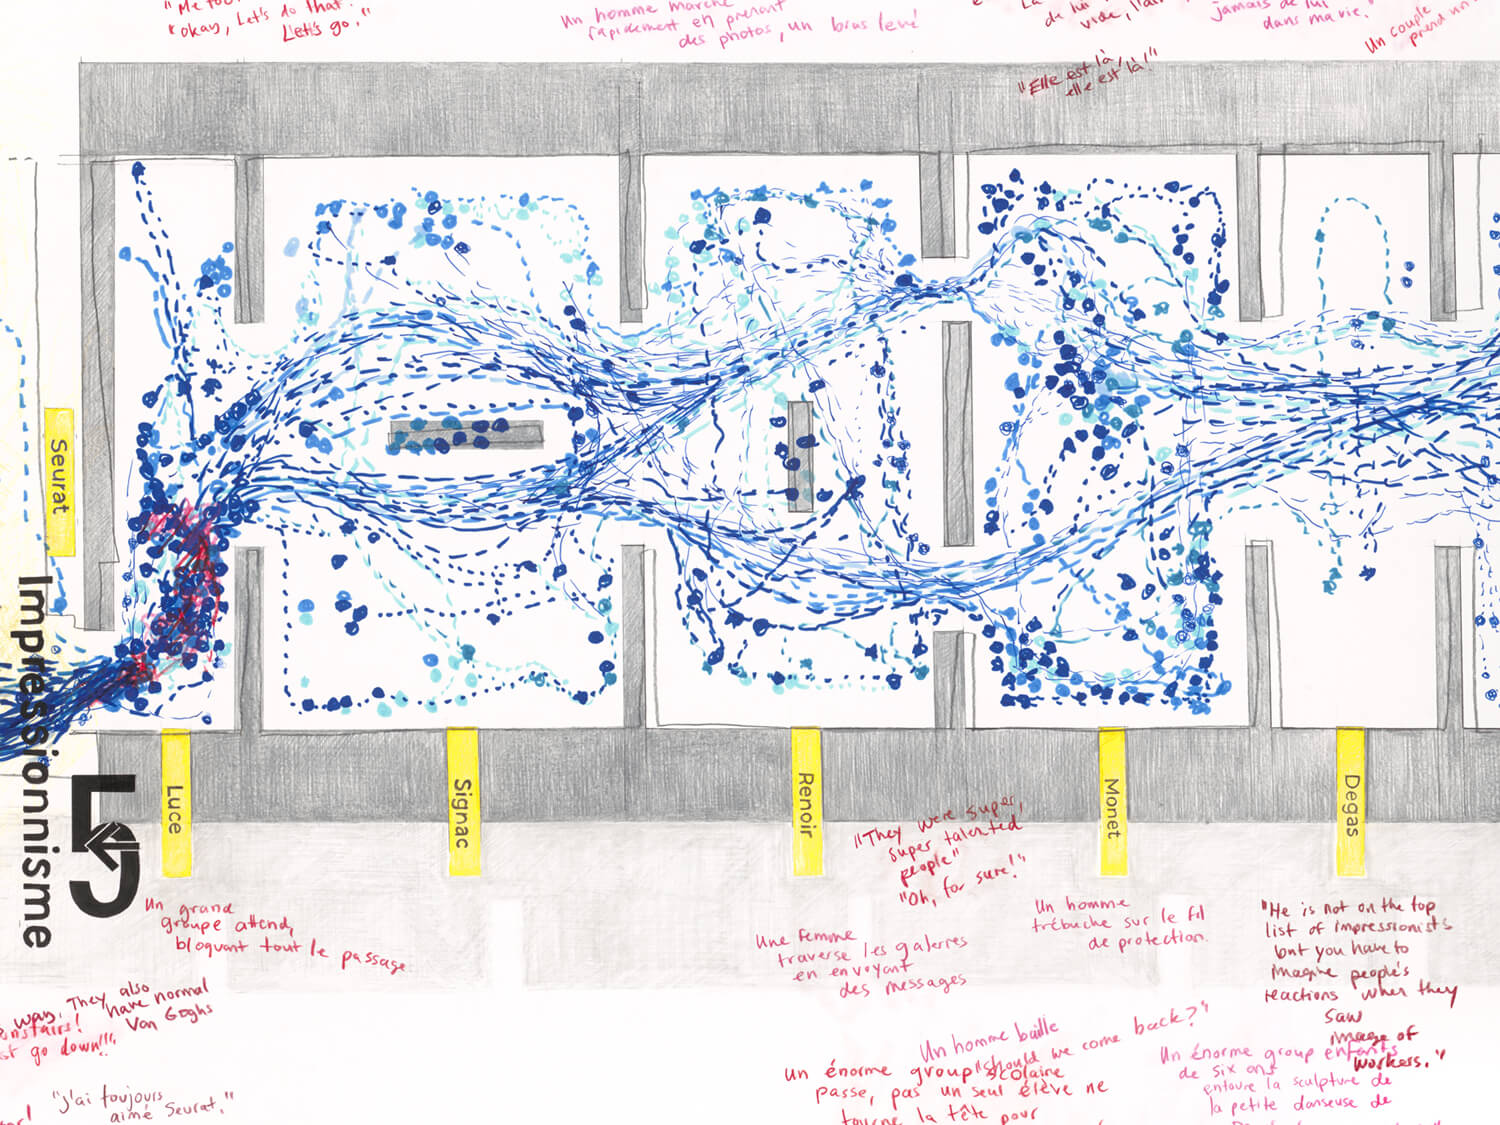 "Me too.
"okay, Let's do that.
Let's go."
Un homme marche
rapidement en prenant
des photos, un bras levé
de lui
vide, l'air
jamais de lui
dans ma vie."
Un couple
prend un
"Elle est là,
elle est là!"
Seurat
Impressionnisme
Luce
Signac
Renoir
Monet
Degas
Un grand
groupe attend,
bloquant tout le passage
"They were super,
super talented
people"
"Oh, for sure!"
Une femme
traverse les galeries
en envoyant
des messages
Un homme
trébuche sur le fil
de protection.
"He is not on the top
list of impressionists
but you have to
imagine people's
reactions when they
saw
image of
workers."
way. They also
have normal
Van Goghs
go down!!!
"J'ai toujours
aimé Seurat."
Un homme baille
"should we come back?"
un énorme group scolaire
passe, pas un seul élève ne
tourne la tête pour
Un énorme group enfants
de six ans
entoure la sculpture de
la petite danseuse de